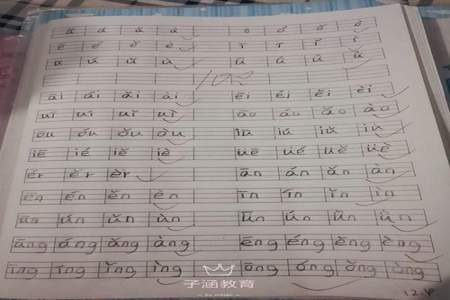 ā á ǎ à ō ó ǒ ò
ē é ě è ī í ǐ ì
ū ú ǔ ù ǖ ǘ ǚ ǜ
100
āi ái ǎi ài ēi éi ěi èi
uī uí uǐ uì āo áo ǎo ào
ōu óu ǒu òu iū iú iǔ iù
iē ié iě iè üē üé üě üè
ér ěr èr ān án ǎn àn
ēn én ěn èn īn ín ǐn ìn
ūn ún ǔn ùn ǖn ǘn ǚn ǜn
āng áng ǎng àng ēng éng ěng èng
īng íng ǐng ìng ōng óng ǒng òng
子涵教育
12.4